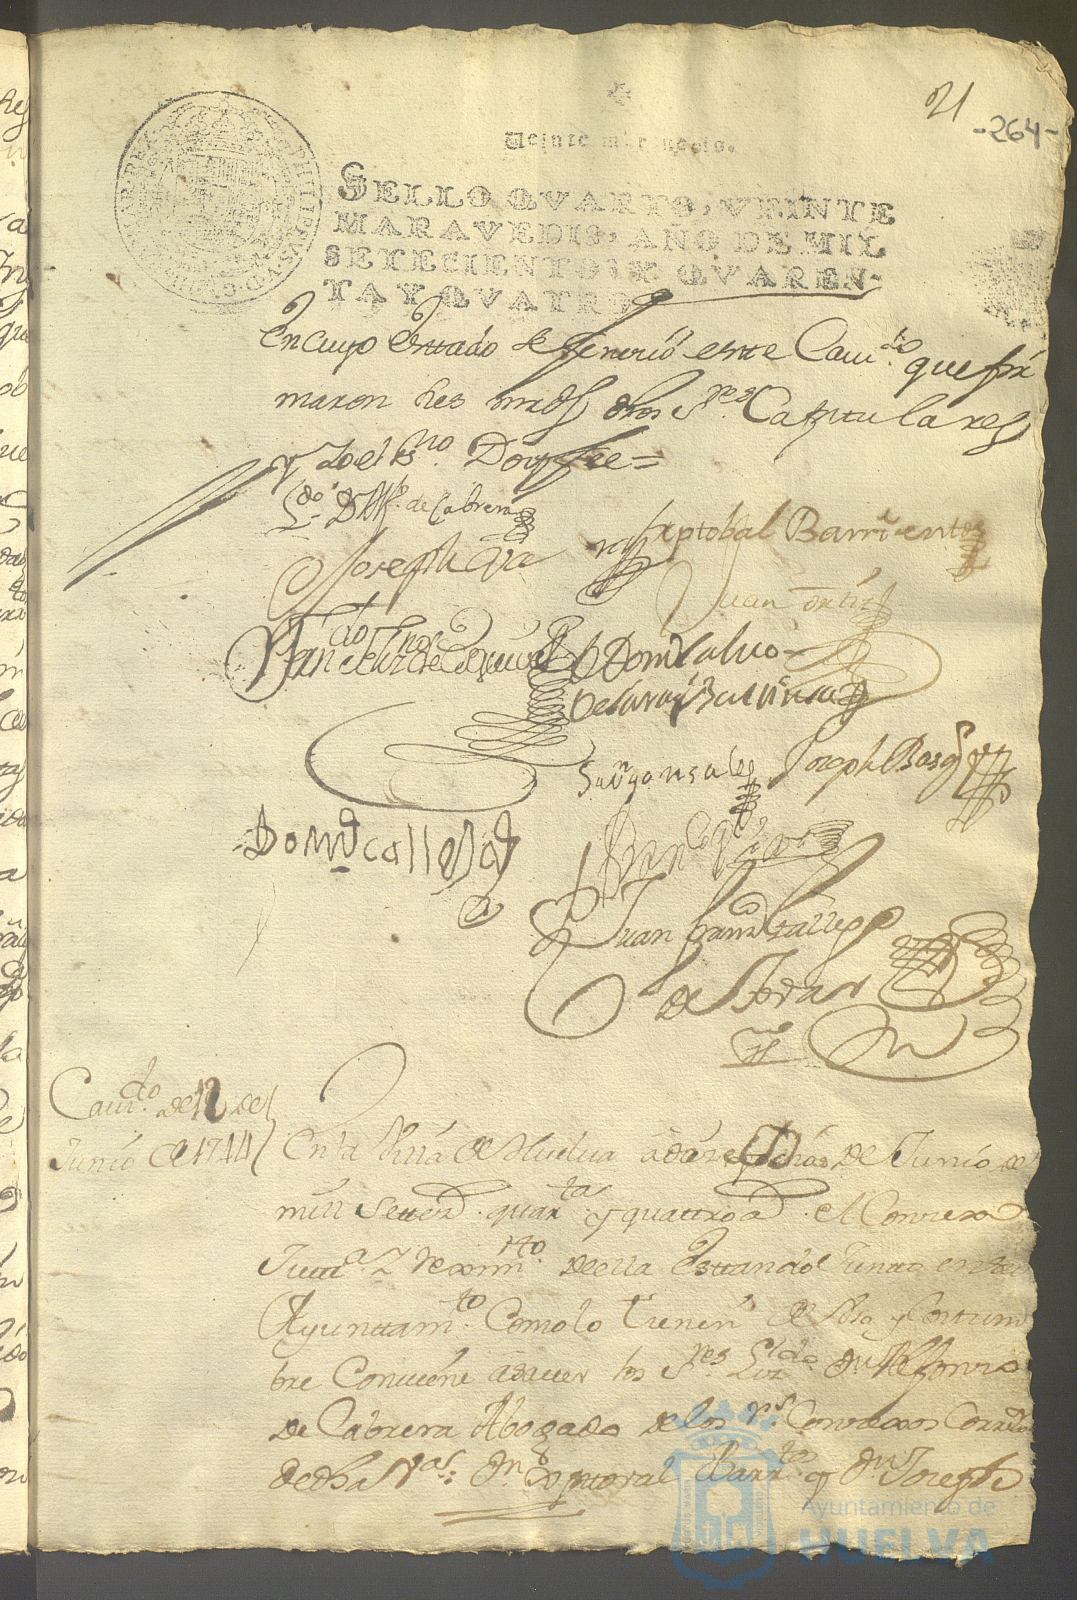 21
-264-
Veinte marauedis.
SELLO QVARTO, VEINTE
MARAVEDIS, AÑO DE MIL
SETECIENTOS Y QVAREN-
TA Y QVATRO
En cuyo estado se fenecio este Cavi.do que fir
maron sus mrds dhos S.res Capitulares
y Yo el Es.no Doy fee =
L.do D. Alf.o de Cabrera
Joseph
Xptobal Barrientos
Juan Ortiz
Dom.o Calvo
Joseph Bosq
San Gonsales
Dom.o Calleja
Juan Gallego
de Tovar
Cavi.do de 12 de
Junio de 1744
En la Villa de Huelva a doze dias de Junio de
mill Setez.s quar.ta y quattro a.s el Conzexo
Justt.a Y Reximi.to de ella estando Junto en su
Ayunttam.to Como lo tienen de Uso y Costum
bre Conviene a saver los S.res Liz.do Dn Alfonso
de Cabrera Abogado de los R.s Consexos Corre.or
de dha V.a Dn Xptoval Barr.tos y Dn Joseph
Ayuntamiento de
HUELVA